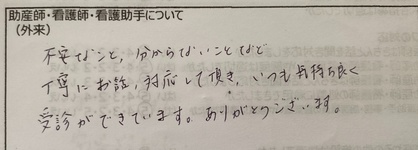 助産師・看護師・看護助手について
(外来)
不安なこと、分からないことなど
丁寧にお話、対応して頂き、いつも気持ち良く
受診ができています。ありがとうございます。